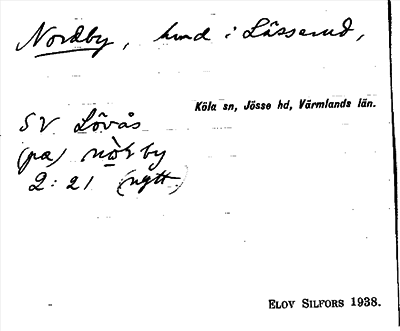 Nordby, hmd i Lässerud,
Köla sn, Jösse hd, Värmlands län.
SV Lövås
(pa) nòrby
2:21 (nytt)
ELOV SILFORS 1938.